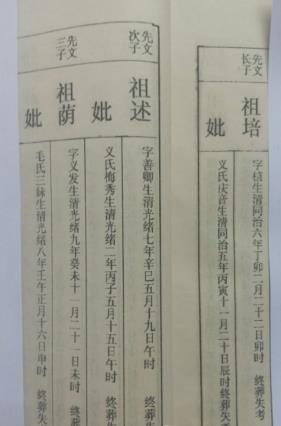 先文长子
祖培
字植生清同治六年丁卯二月二十二日卯时 终葬失考
妣
义氏庆音生清同治五年丙寅十一月二十日辰时 终葬失考
先文次子
祖述
字善卿生清光绪七年辛巳五月十九日午时 终葬失
妣
义氏梅秀生清光绪二年丙子五月十五日午时 终葬失
先文三子
祖荫
字义发生清光绪九年癸未十一月二十一日未时 终葬
妣
毛氏三妹生清光绪八年壬午正月十六日申时 终葬